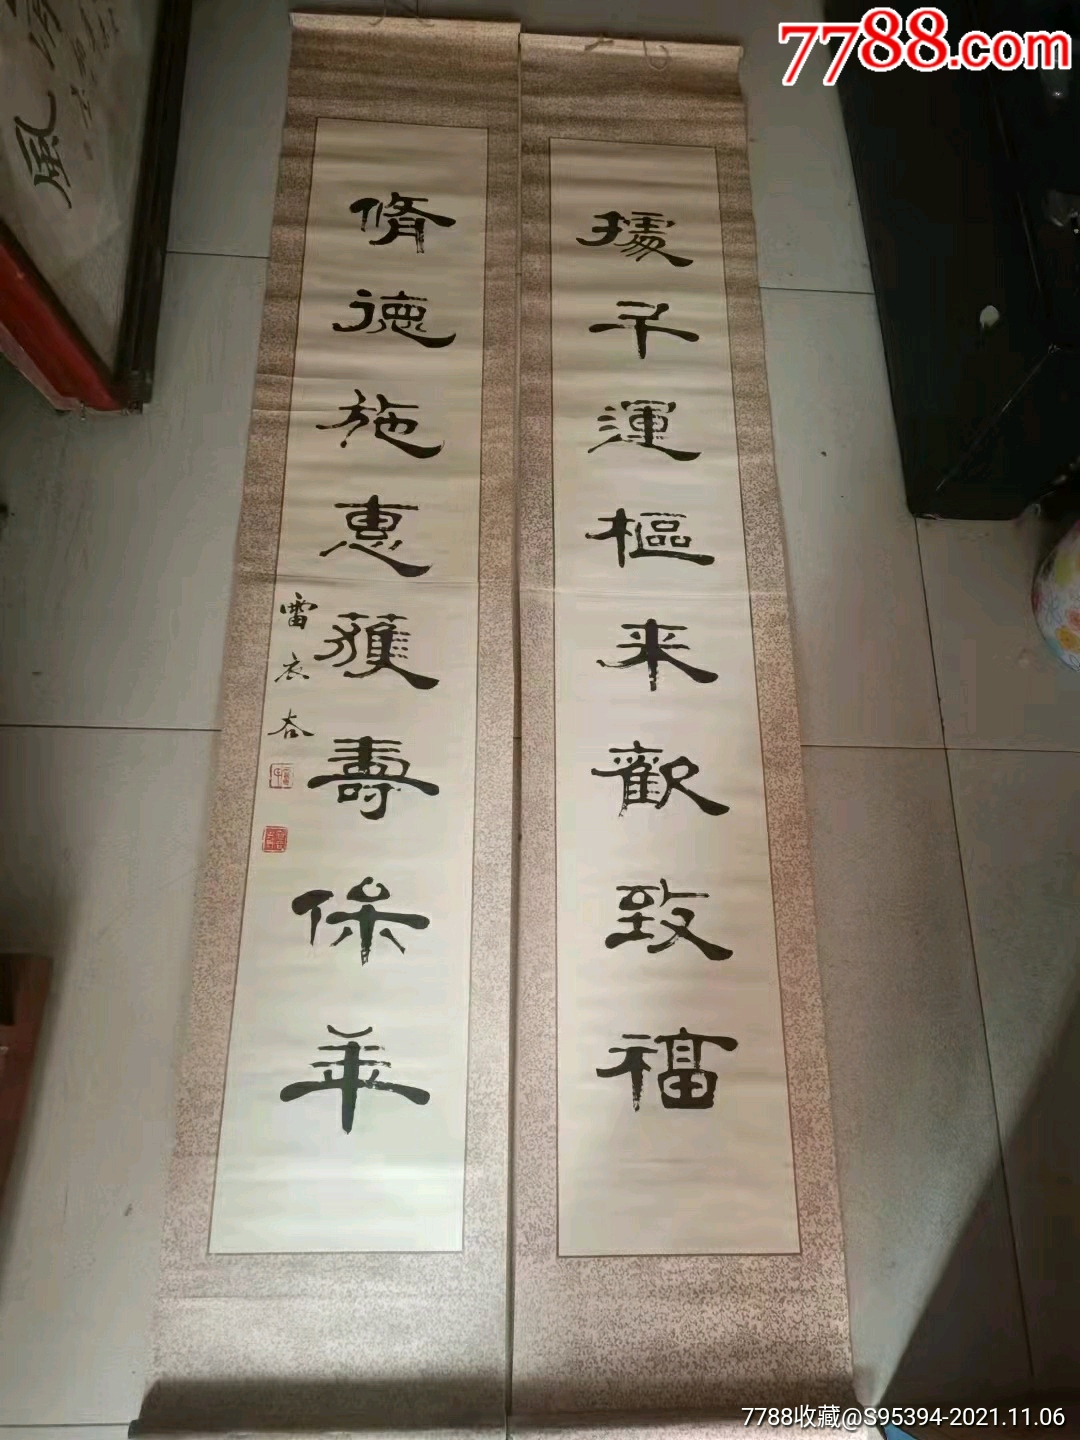 7788.com
風
據斗運樞来歡致福
脩德施惠獲壽保年
雷
7788收藏@S95394-2021.11.06